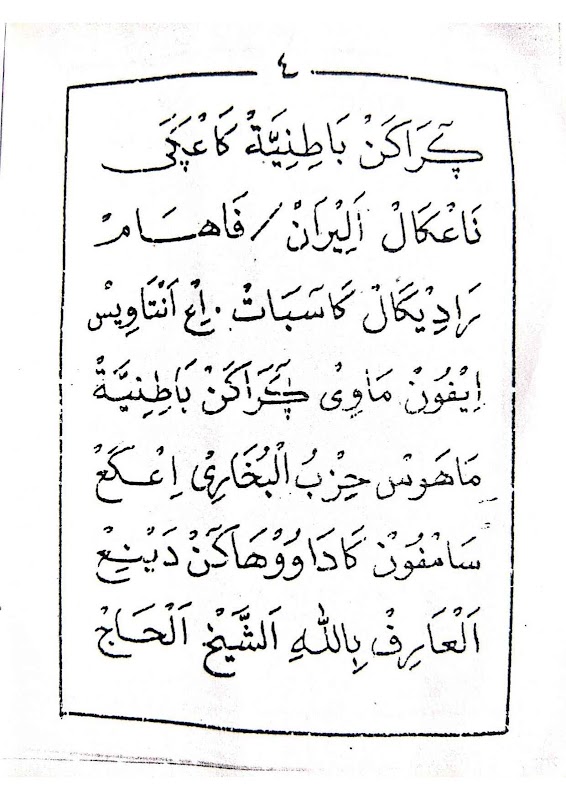 ٤
ڮٓرَاكَنْ بَاطِنِيَّةْ كَاڠْڮَى
نَاڠْكَالْ اَلِيْرَانْ / فَاهَامْ
رَادِيْكَالْ كَاسَبَاتْ. اِڠْ اَنْتَاوِيسْ
اِيْفُونْ مَاوِىْ ڮٓرَاكَنْ بَاطِنِيَّةْ
مَاهَوسْ حِزْبُ الْبُخَارِىْ اِڠْكَڠْ
سَامْفُونْ كَادَاوُوْهَاكَنْ دَيْنِڠْ
اَلْعَارِفْ بِاللهِ اَلشَّيْخْ اَلْحَاجْ